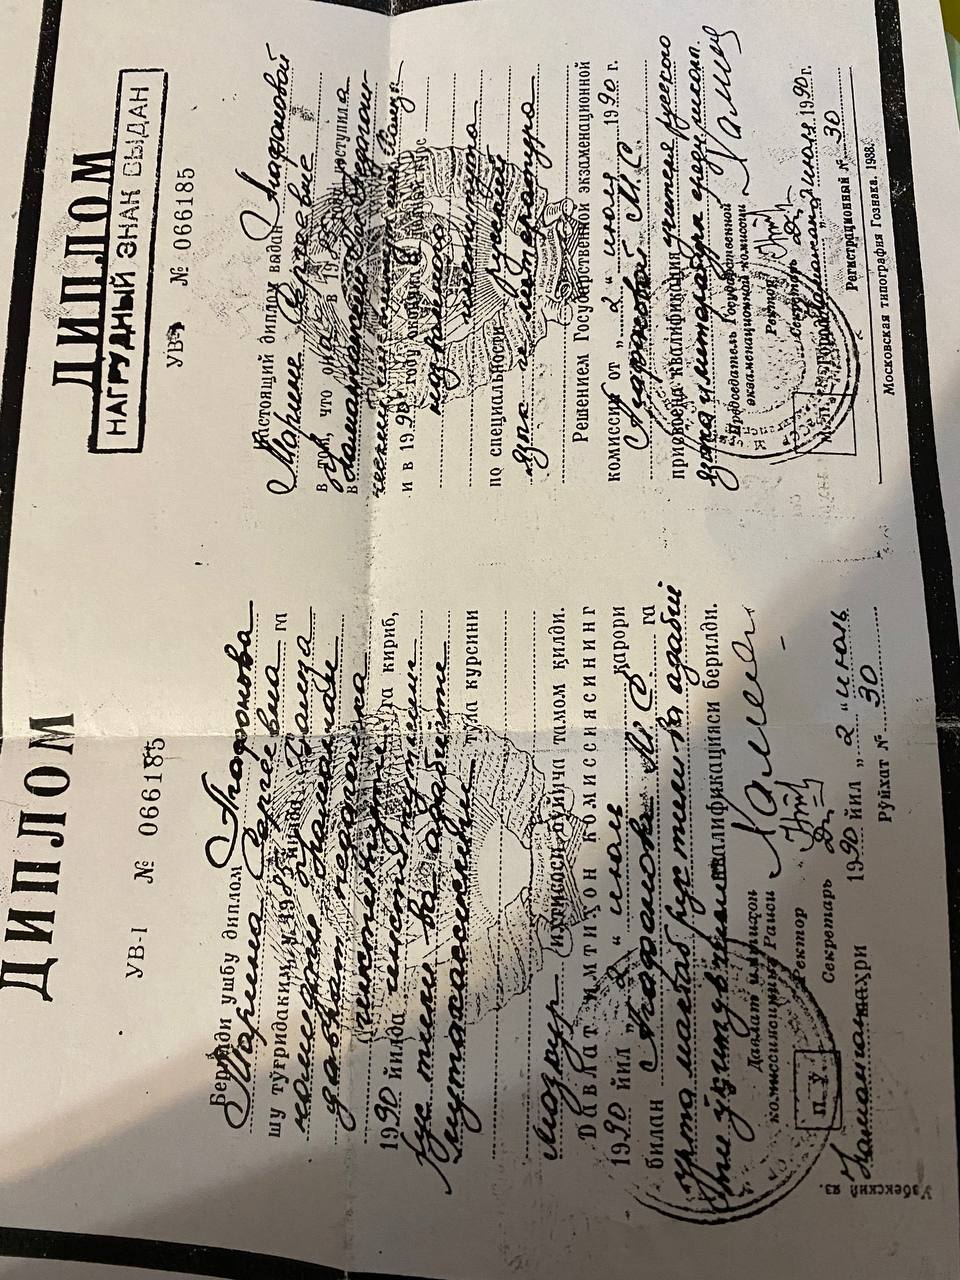 ДИПЛОМ
УВ-I № 066185
Берилди ушбу диплом Агафонова
Марина Сергеевна га
шу тўғридаким, у 1985 йилда Ҳамза
номидаги Наманган
давлат педагогика
институтига кириб,
1990 йилда институтнинг
рус тили ва адабиёти
мутахассислиги тўла курсини
мазкур ихтисоси бўйича тамом қилди.
Давлат имтиҳон комиссиясининг
1990 йил „2“ июль қарори
билан Агафонова М.С. га
ўрта мактаб рус тили ва адабиё
ти ўқитувчиси квалификацияси берилди.
Давлат имтиҳон
комиссиясининг Раиси
Ректор
Секретарь
П. У.
Наманган шаҳри 1990 йил „2“ июль
Рўйхат № 30
Узбекский яз.
ДИПЛОМ
НАГРУДНЫЙ ЗНАК ВЫДАН
УВ № 066185
Настоящий диплом выдан Агафоновой
Марине Сергеевне
в том, что она в 1985 году поступила
в Наманганский госпедагоги
ческий институт им. Хамзы
и в 1990 году окончила полный курс
названного
института
по специальности русский
язык и литература
Решением Государственной экзаменационной
комиссии от „2“ июля 1990 г.
Агафоновой М.С.
присвоена квалификация учителя русского
языка и литературы средн. школы.
Председатель Государственной
экзаменационной комиссии
Ректор
Секретарь
Город Наманган 2 июля 1990 г.
Регистрационный № 30
Московская типография Гознака. 1988.